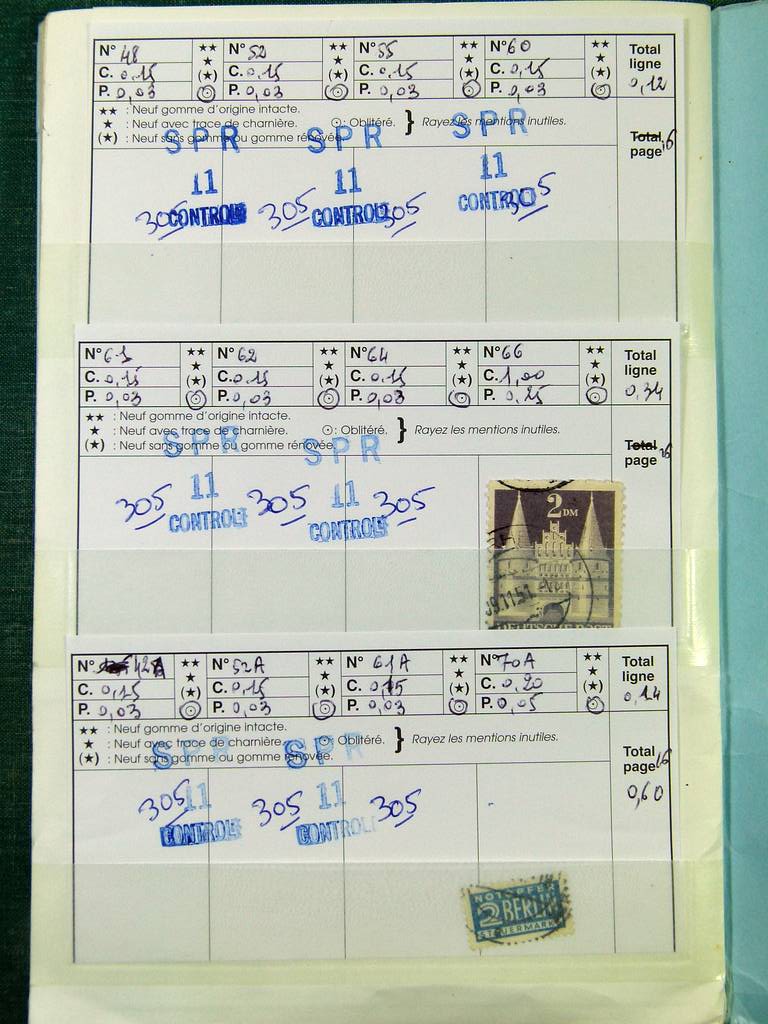 N° 48 ★★ N° 52 ★★ N° 55 ★★ N° 60 ★★ Total
C. 0,15 ★ C. 0,15 ★ C. 0,15 ★ C. 0,15 ★ ligne
P. 0,03 (★) P. 0,03 (★) P. 0,03 (★) P. 0,03 (★) 0,12
★★ : Neuf gomme d'origine intacte.
★ : Neuf avec trace de charnière. ⊙: Oblitéré. } Rayez les mentions inutiles.
(★) : Neuf sans gomme ou gomme rénovée.
Total
page
SPR SPR SPR
11 11 11
305 CONTROLE 305 CONTROLE 305 CONTROLE 305
N° 61 ★★ N° 62 ★★ N° 64 ★★ N° 66 ★★ Total
C. 0,15 ★ C. 0,15 ★ C. 0,15 ★ C. 1,00 ★ ligne
P. 0,03 (★) P. 0,03 (★) P. 0,03 (★) P. 0,25 (★) 0,34
★★ : Neuf gomme d'origine intacte.
★ : Neuf avec trace de charnière. ⊙: Oblitéré. } Rayez les mentions inutiles.
(★) : Neuf sans gomme ou gomme rénovée.
Total
page
SPR SPR
11 11
305 CONTROLE 305 CONTROLE 305
2 DM
09.11.51
DEUTSCHE POST
N° 42A ★★ N° 52A ★★ N° 61A ★★ N° 70A ★★ Total
C. 0,15 ★ C. 0,15 ★ C. 0,15 ★ C. 0,20 ★ ligne
P. 0,03 (★) P. 0,03 (★) P. 0,03 (★) P. 0,05 (★) 0,14
★★ : Neuf gomme d'origine intacte.
★ : Neuf avec trace de charnière. ⊙: Oblitéré. } Rayez les mentions inutiles.
(★) : Neuf sans gomme ou gomme rénovée.
Total
page
0,60
SPR SPR
305 11 305 11 305
CONTROLE CONTROL
NOTOPFER
2 BERLIN
STEUERMARKE